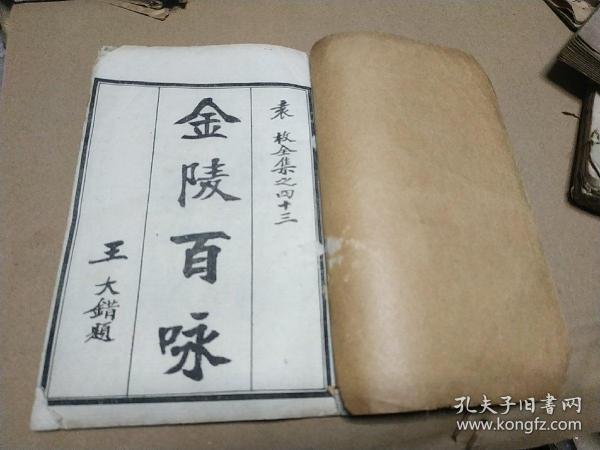 袁枚全集之四十三
金陵百咏
王大错题
孔夫子旧书网
www.kongfz.com